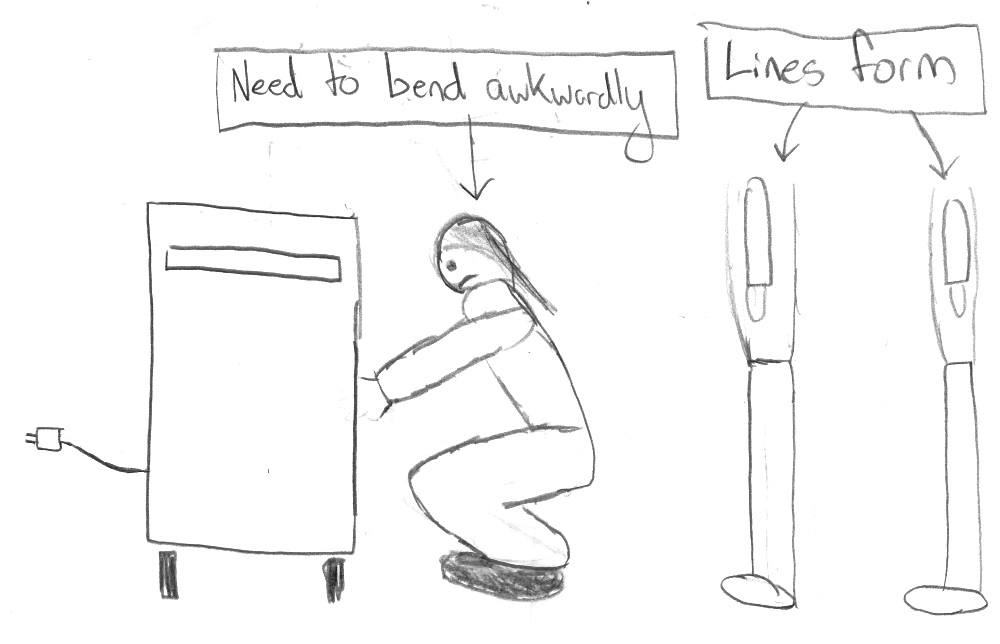 Need to bend awkwardly
Lines form